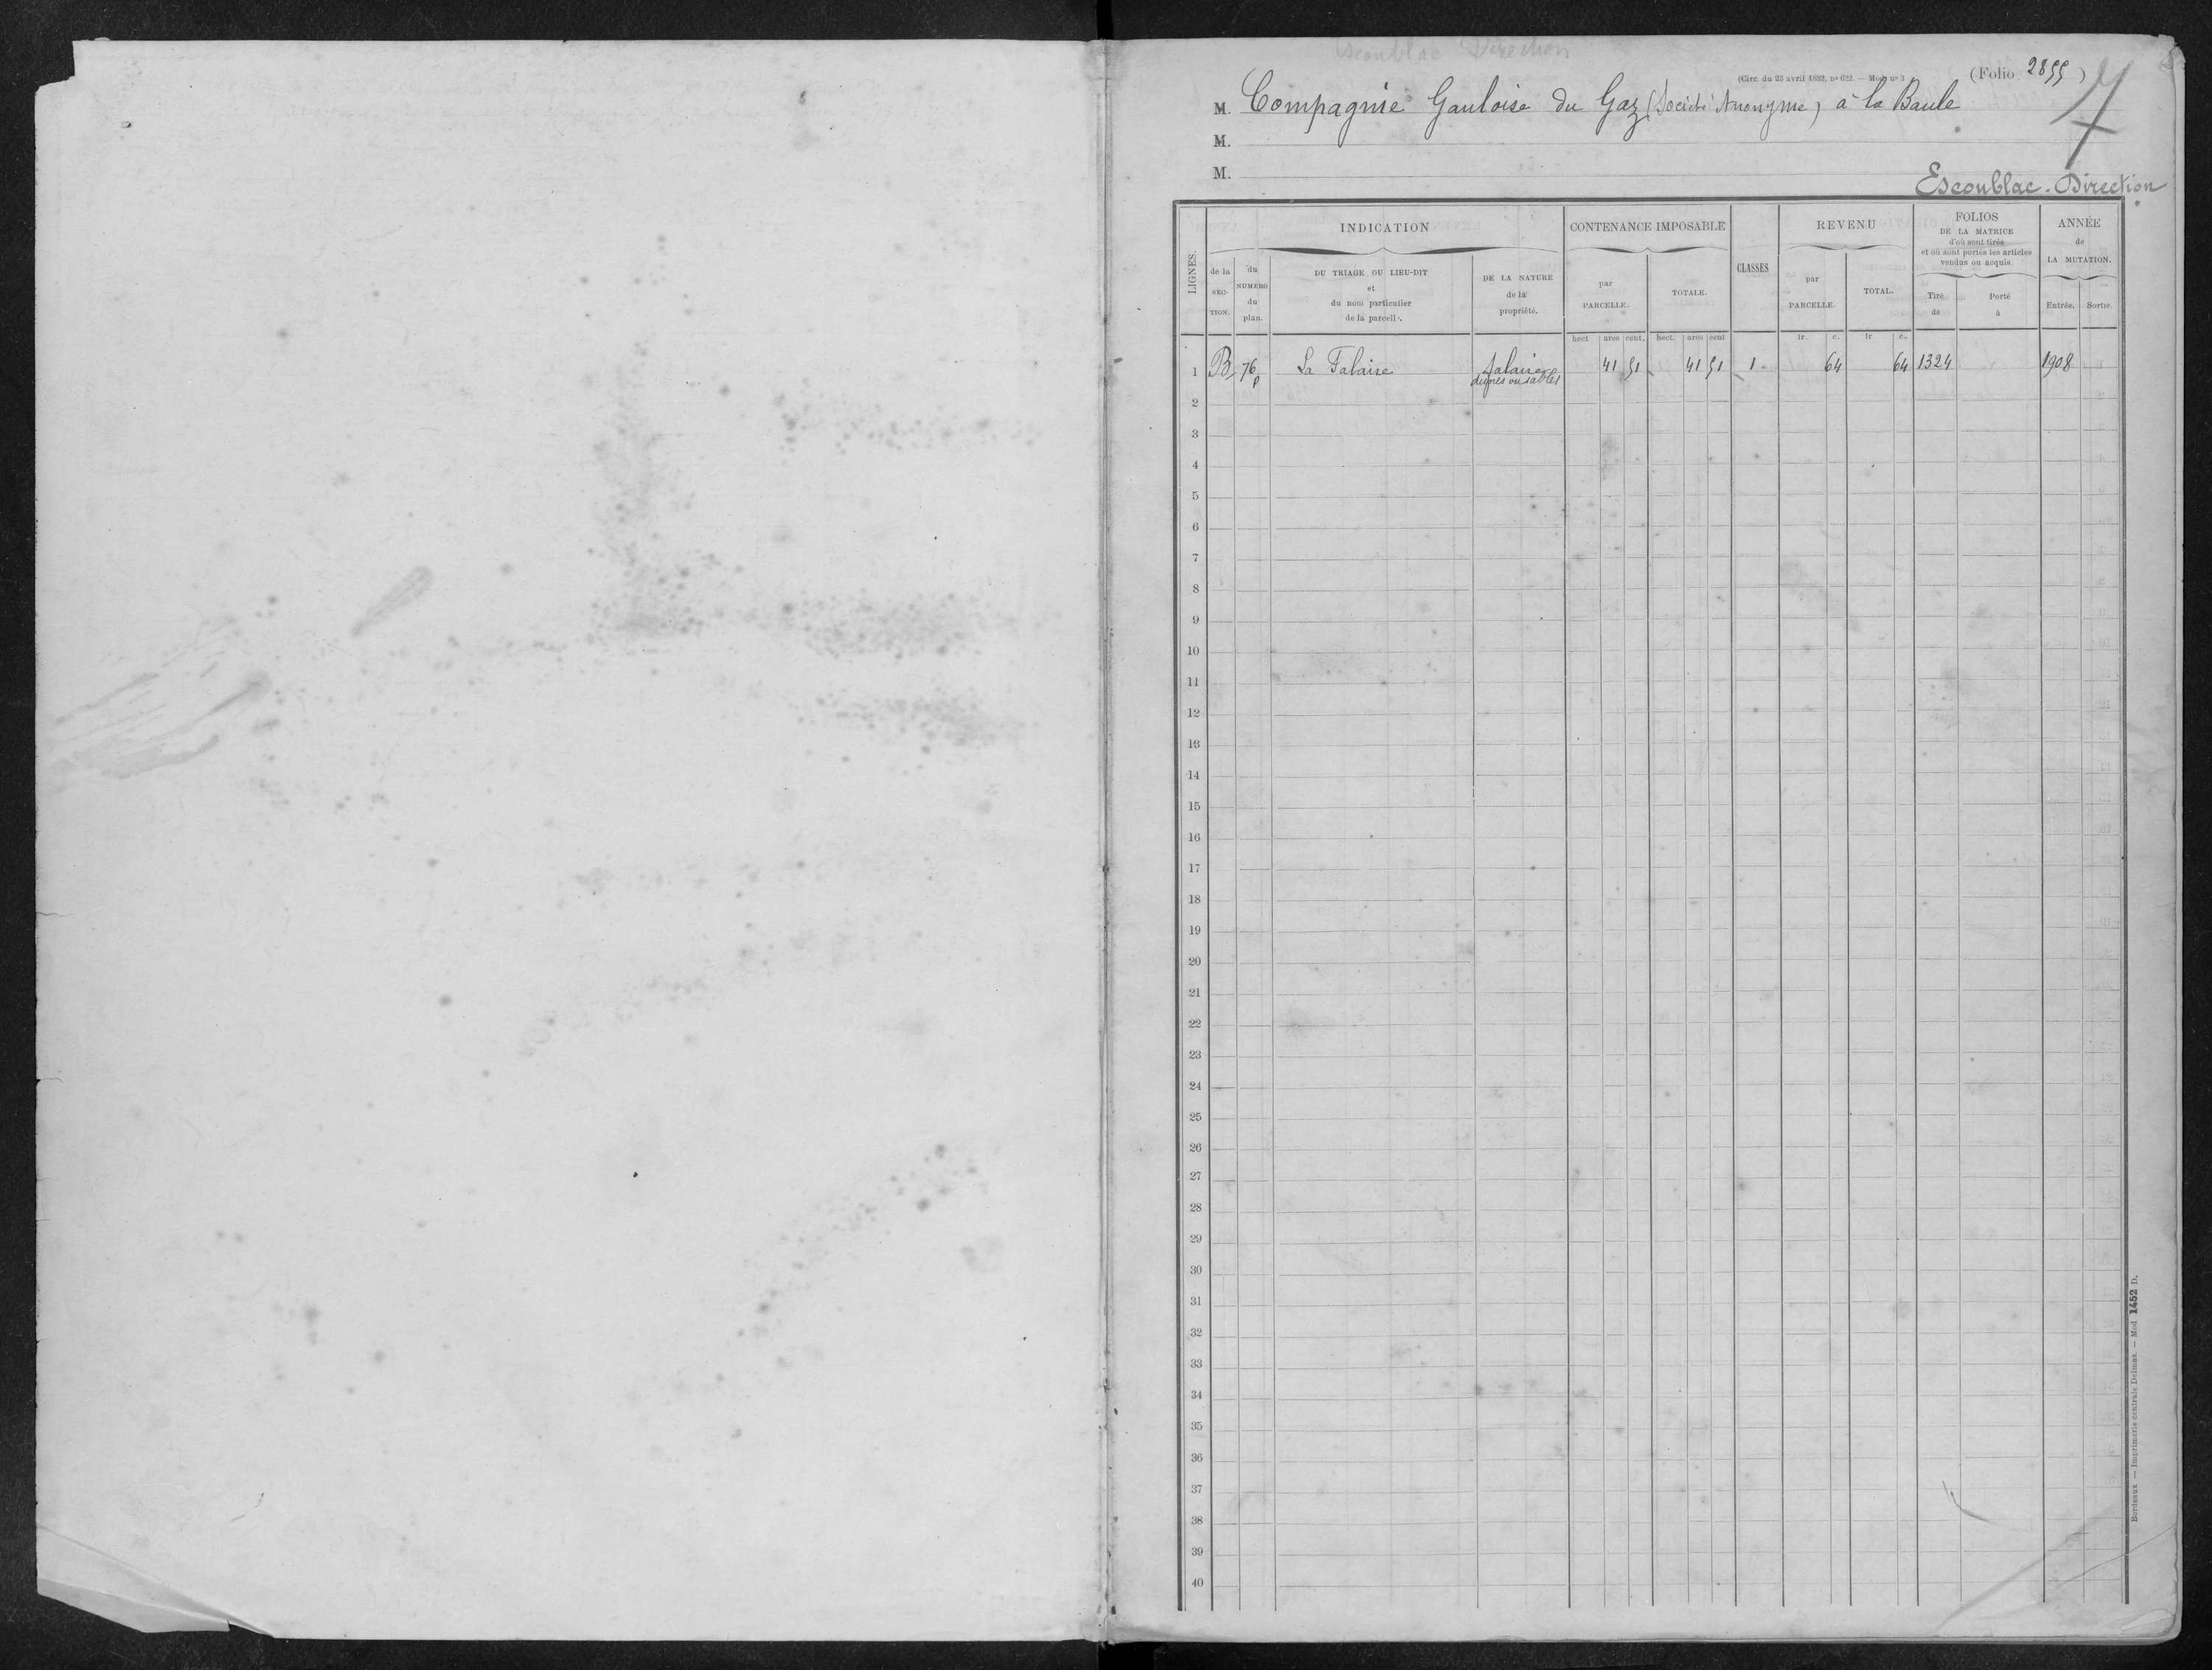 Escoublac Direction
(Circ. du 23 avril 1882, nº 622. — Mod. nº 3
(Folio 2855)
M. Compagnie Gauloise du Gaz (Société Anonyme) à la Baule
M.
M.
Escoublac-Direction
LIGNES.
INDICATION
CONTENANCE IMPOSABLE
CLASSES
REVENU
FOLIOS
DE LA MATRICE
d'où sont tirés
et où sont portés les articles
vendus ou acquis.
ANNÉE
de
LA MUTATION.
de la
SEC-
TION.
du
NUMÉRO
du
plan.
DU TRIAGE OU LIEU-DIT
et
du nom particulier
de la parcelle.
DE LA NATURE
de la
propriété.
par
PARCELLE.
TOTALE.
par
PARCELLE.
TOTAL.
Tiré
de
Porté
à
Entrée.
Sortie.
hect ares cent. hect. ares cent fr c. fr c.
1 B 76 p La Falaise falaises 41 51 41 51 1 64 64 1324 1908
dunes ou sables
2
3
4
5
6
7
8
9
10
11
12
13
14
15
16
17
18
19
20
21
22
23
24
25
26
27
28
29
30
31
32
33
34
35
36
37
38
39
40
Bordeaux. — Imprimerie centrale Delmas. — Mod 1452 D.